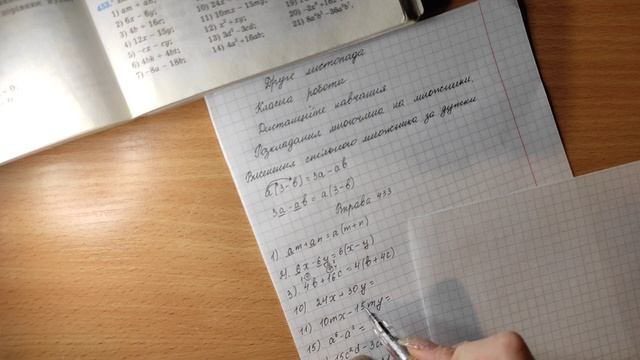 433.
1) am + an;
2) 6x - 6y;
3) 4b + 16c;
4) 12x - 15y;
5) -cx - cy;
6) 4bk + 4bt;
7) -8a - 18b;
11) 10mx - 15my;
12) x² + xy;
13) 3d² - 3cd;
14) 4a² + 16ab;
Друге листопада
Класна робота
Дистанційне навчання
Розкладання многочлена на множники.
Винесення спільного множника за дужки
a(3-b) = 3a - ab
3a - ab = a(3-b)
Вправа 433
1) am + an = a(m+n)
2) 6x - 6y = 6(x-y)
3) 4b + 16c = 4(b+4c)
10) 24x + 30y =
11) 10mx - 15my =
15)